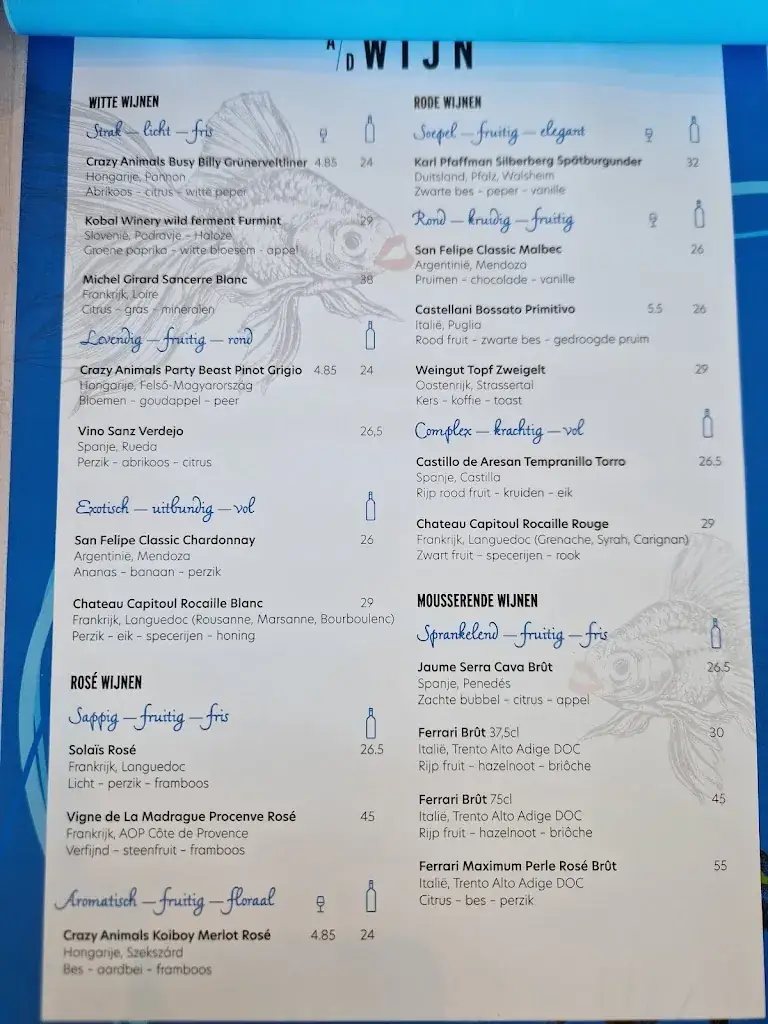 A/D WIJN
WITTE WIJNEN
Strak — licht — fris
Crazy Animals Busy Billy Grünerveltliner 4.85 24
Hongarije, Pannon
Abrikoos - citrus - witte peper
Kobal Winery wild ferment Furmint 29
Slovenië, Podravje - Haloze
Groene paprika - witte bloesem - appel
Michel Girard Sancerre Blanc 38
Frankrijk, Loire
Citrus - gras - mineralen
Levendig — fruitig — rond
Crazy Animals Party Beast Pinot Grigio 4.85 24
Hongarije, Felsö-Magyarország
Bloemen - goudappel - peer
Vino Sanz Verdejo 26,5
Spanje, Rueda
Perzik - abrikoos - citrus
Exotisch — uitbundig — vol
San Felipe Classic Chardonnay 26
Argentinië, Mendoza
Ananas - banaan - perzik
Chateau Capitoul Rocaille Blanc 29
Frankrijk, Languedoc (Rousanne, Marsanne, Bourboulenc)
Perzik - eik - specerijen - honing
ROSÉ WIJNEN
Sappig — fruitig — fris
Solaïs Rosé 26.5
Frankrijk, Languedoc
Licht - perzik - framboos
Vigne de La Madrague Procenve Rosé 45
Frankrijk, AOP Côte de Provence
Verfijnd - steenfruit - framboos
Aromatisch — fruitig — floraal
Crazy Animals Koiboy Merlot Rosé 4.85 24
Hongarije, Szekszárd
Bes - aardbei - framboos
RODE WIJNEN
Soepel — fruitig — elegant
Karl Pfaffman Silberberg Spätburgunder 32
Duitsland, Pfalz, Walsheim
Zwarte bes - peper - vanille
Rond — kruidig — fruitig
San Felipe Classic Malbec 26
Argentinië, Mendoza
Pruimen - chocolade - vanille
Castellani Bossato Primitivo 5.5 26
Italië, Puglia
Rood fruit - zwarte bes - gedroogde pruim
Weingut Topf Zweigelt 29
Oostenrijk, Strassertal
Kers - koffie - toast
Complex — krachtig — vol
Castillo de Aresan Tempranillo Torro 26.5
Spanje, Castilla
Rijp rood fruit - kruiden - eik
Chateau Capitoul Rocaille Rouge 29
Frankrijk, Languedoc (Grenache, Syrah, Carignan)
Zwart fruit - specerijen - rook
MOUSSERENDE WIJNEN
Sprankelend — fruitig — fris
Jaume Serra Cava Brût 26.5
Spanje, Penedés
Zachte bubbel - citrus - appel
Ferrari Brût 37,5cl 30
Italië, Trento Alto Adige DOC
Rijp fruit - hazelnoot - briôche
Ferrari Brût 75cl 45
Italië, Trento Alto Adige DOC
Rijp fruit - hazelnoot - briôche
Ferrari Maximum Perle Rosé Brût 55
Italië, Trento Alto Adige DOC
Citrus - bes - perzik